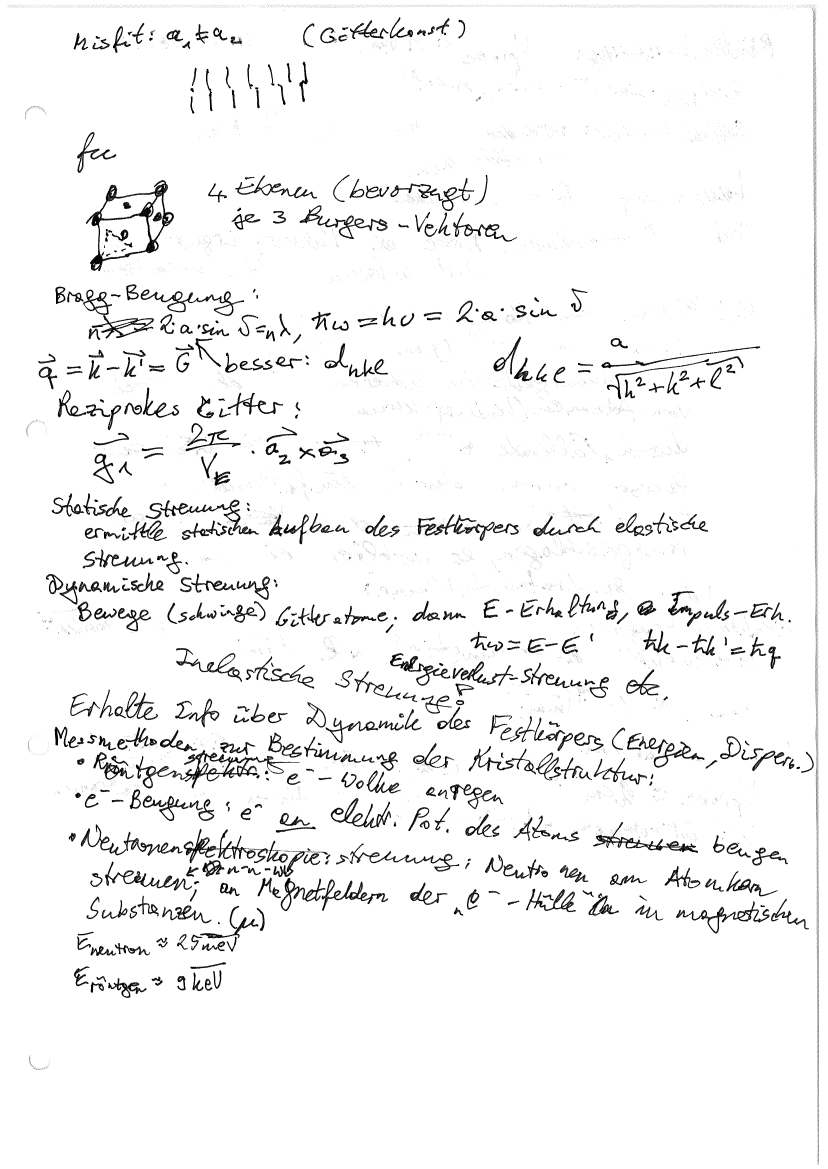 Misfit: a₁ ≠ a₂ (Gitterkonst.)
fcc
4 Ebenen (bevorzugt)
je 3 Burgers-Vektoren
Bragg-Beugung:
2·a·sin ϑ = nλ, ħω = hν = 2·a·sin ϑ
q⃗ = k⃗ - k⃗' = G⃗ besser: d_hkl d_hkl = a / √(h² + k² + l²)
Reziprokes Gitter:
g⃗₁ = 2π / V_E · a⃗₂ × a⃗₃
Statische Streuung:
ermittle statischen Aufbau des Festkörpers durch elastische
Streuung.
Dynamische Streuung:
Bewege (schwinge) Gitteratome; dann E-Erhaltung, Impuls-Erh.
ħω = E - E' ħk - ħk' = ħq
Inelastische Streuung: Energieverlust-Streuung etc.
Erhalte Info über Dynamik des Festkörpers (Energien, Dispers.)
Messmethoden zur Bestimmung der Kristallstruktur:
• Röntgenstreuung: e⁻-Wolke anregen
• e⁻-Beugung: e⁻ an elektr. Pot. des Atoms beugen
• Neutronenstreuung: Neutronen am Atomkern
streuen; n-n-WW an Magnetfeldern der e⁻-Hülle in magnetischen
Substanzen. (μ)
E_neutron ≈ 25 meV
E_röntgen ≈ 9 keV